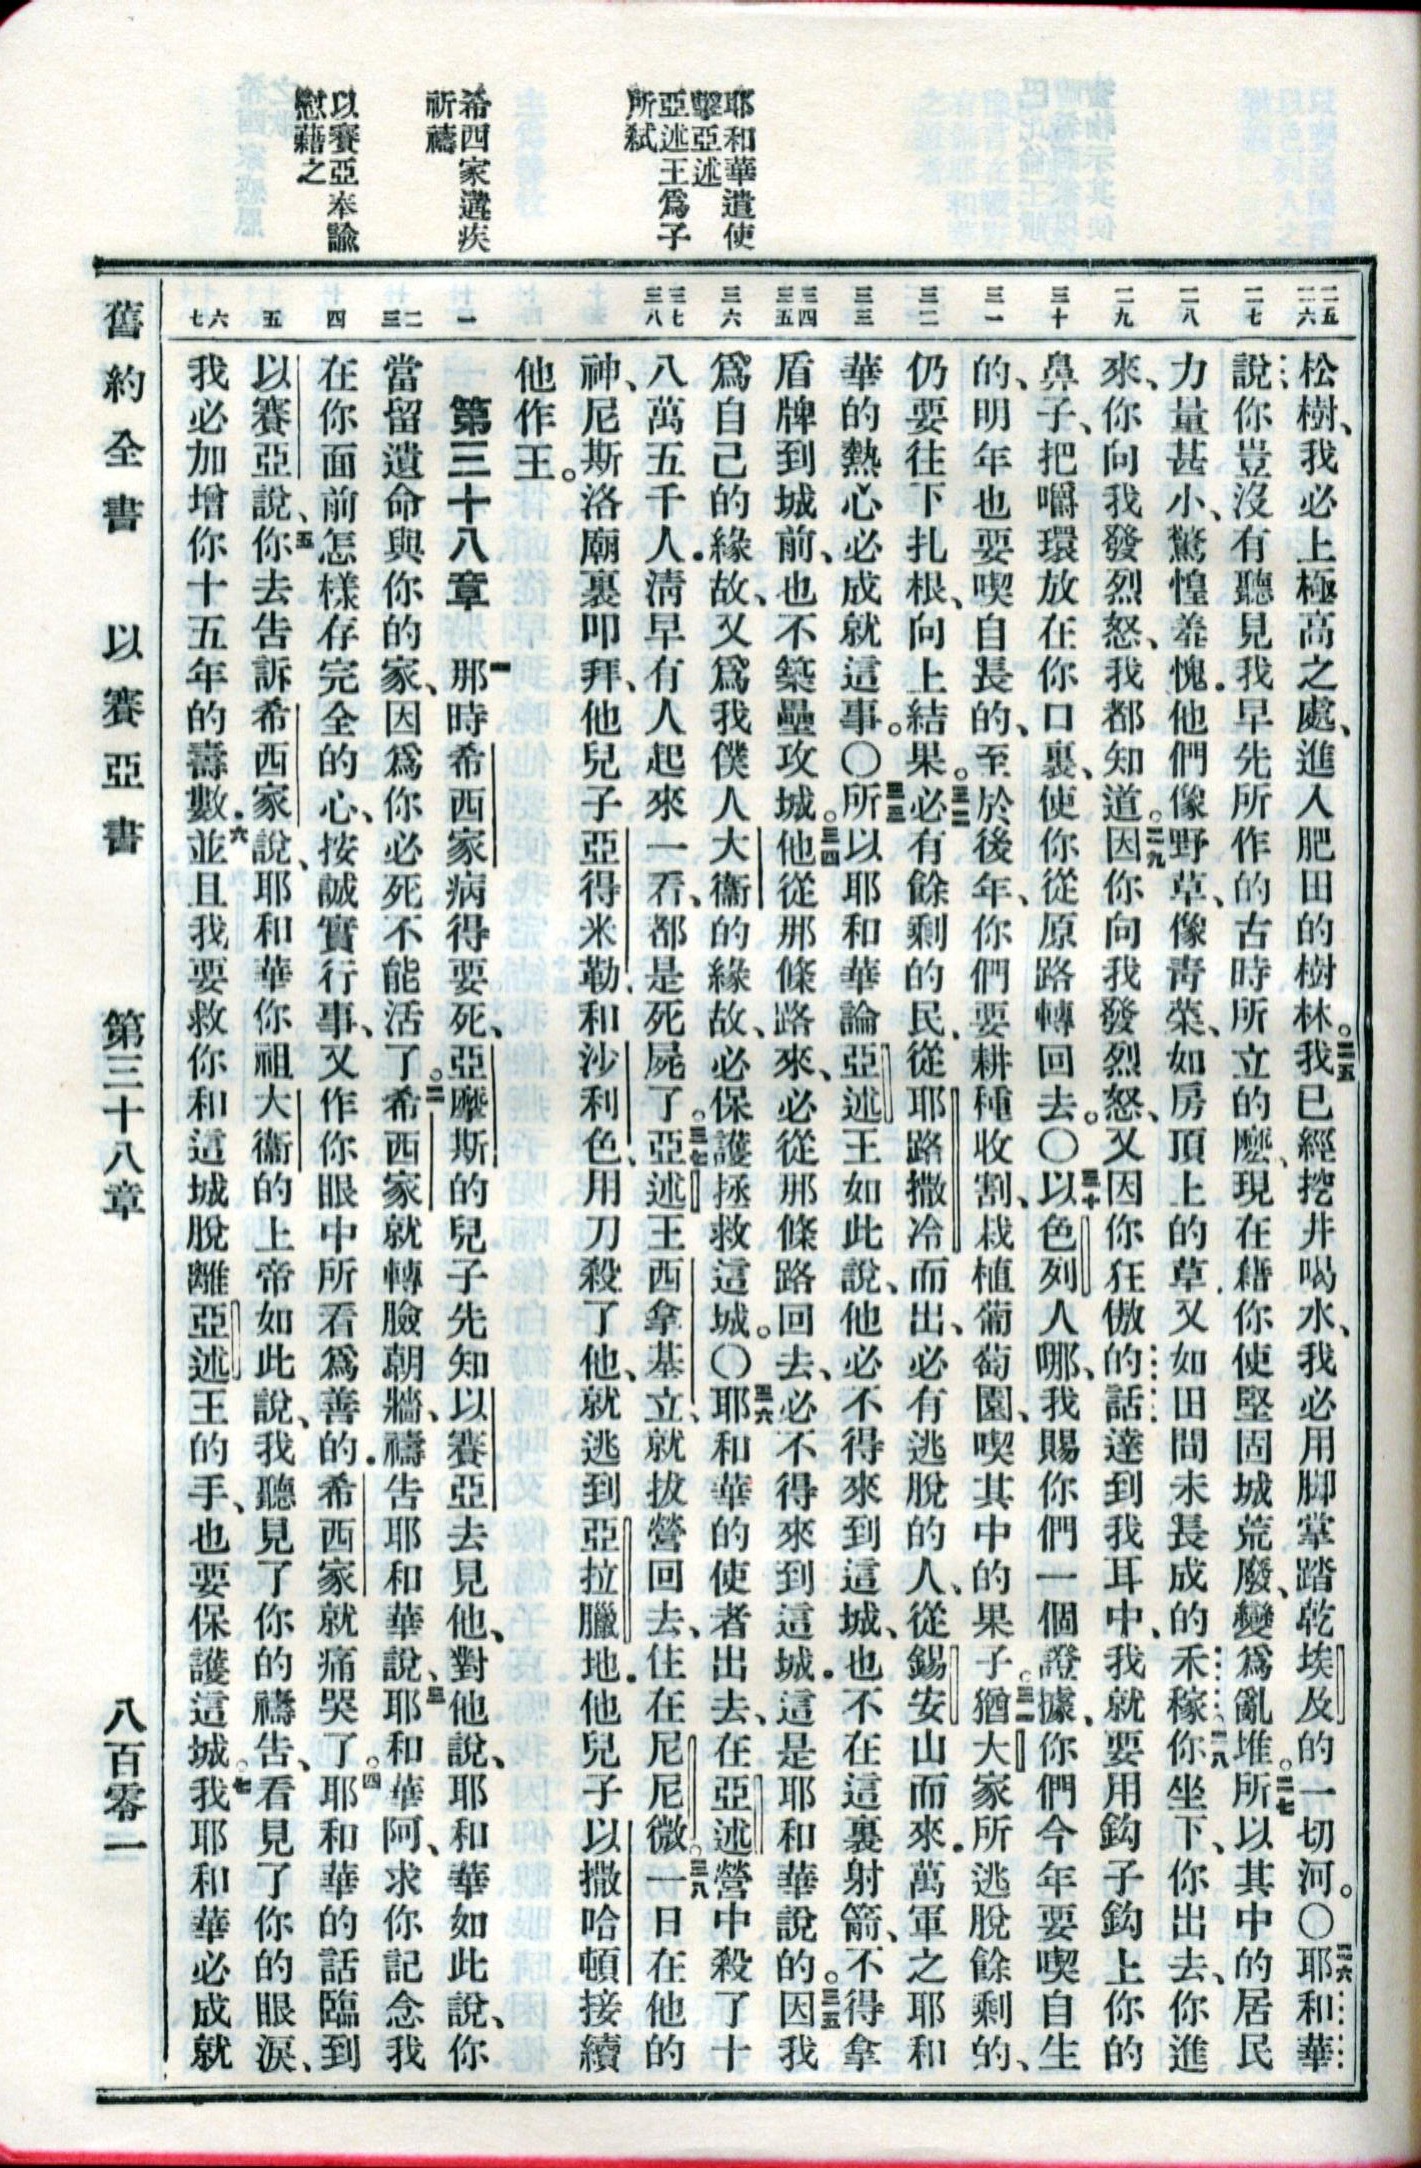 耶和華遣使
擊亞述
亞述王爲子
所弒
希西家遘疾
祈禱
以賽亞奉諭
慰藉之
二五
二六
二七
二八
二九
三十
三一
三二
三三
三四
三五
三六
三七
三八
一
二
三
四
五
六
七
松樹、我必上極高之處、進入肥田的樹林。二五我已經挖井喝水、我必用脚掌踏乾埃及的一切河。〇二六耶和華
說、你豈沒有聽見我早先所作的古時所立的麽、現在藉你使堅固城荒廢、變爲亂堆。二七所以其中的居民
力量甚小、驚惶羞愧．他們像野草、像靑菜、如房頂上的草．又如田間未長成的禾稼。二八你坐下、你出去、你進
來、你向我發烈怒、我都知道。二九因你向我發烈怒、又因你狂傲的話達到我耳中、我就要用鈎子鈎上你的
鼻子、把嚼環放在你口裏、使你從原路轉回去。〇三十以色列人哪、我賜你們一個證據、你們今年要喫自生
的、明年也要喫自長的、至於後年、你們要耕種收割、栽植葡萄園、喫其中的果子。三一猶大家所逃脫餘剩的、
仍要往下扎根、向上結果。三二必有餘剩的民、從耶路撒冷而出、必有逃脫的人、從錫安山而來．萬軍之耶和
華的熱心必成就這事。〇三三所以耶和華論亞述王如此說、他必不得來到這城、也不在這裏射箭、不得拿
盾牌到城前、也不築壘攻城。三四他從那條路來、必從那條路回去、必不得來到這城．這是耶和華說的。三五因我
爲自己的緣故、又爲我僕人大衞的緣故、必保護拯救這城。〇三六耶和華的使者出去、在亞述營中殺了十
八萬五千人．淸早有人起來一看、都是死屍了。三七亞述王西拿基立、就拔營回去、住在尼尼微。三八一日在他的
神、尼斯洛廟裏叩拜、他兒子亞得米勒、和沙利色、用刀殺了他、就逃到亞拉臘地．他兒子以撒哈頓接續
他作王。
第三十八章 一那時希西家病得要死、亞摩斯的兒子先知以賽亞去見他、對他說、耶和華如此說、你
當留遺命與你的家、因爲你必死不能活了。二希西家就轉臉朝牆、禱告耶和華說、三耶和華阿、求你記念我
在你面前怎樣存完全的心、按誠實行事、又作你眼中所看爲善的．希西家就痛哭了。四耶和華的話臨到
以賽亞說、五你去告訴希西家說、耶和華你祖大衞的上帝如此說、我聽見了你的禱告、看見了你的眼淚、
我必加增你十五年的壽數．六並且我要救你和這城脫離亞述王的手、也要保護這城。七我耶和華必成就
舊約全書 以賽亞書 第三十八章 八百零一